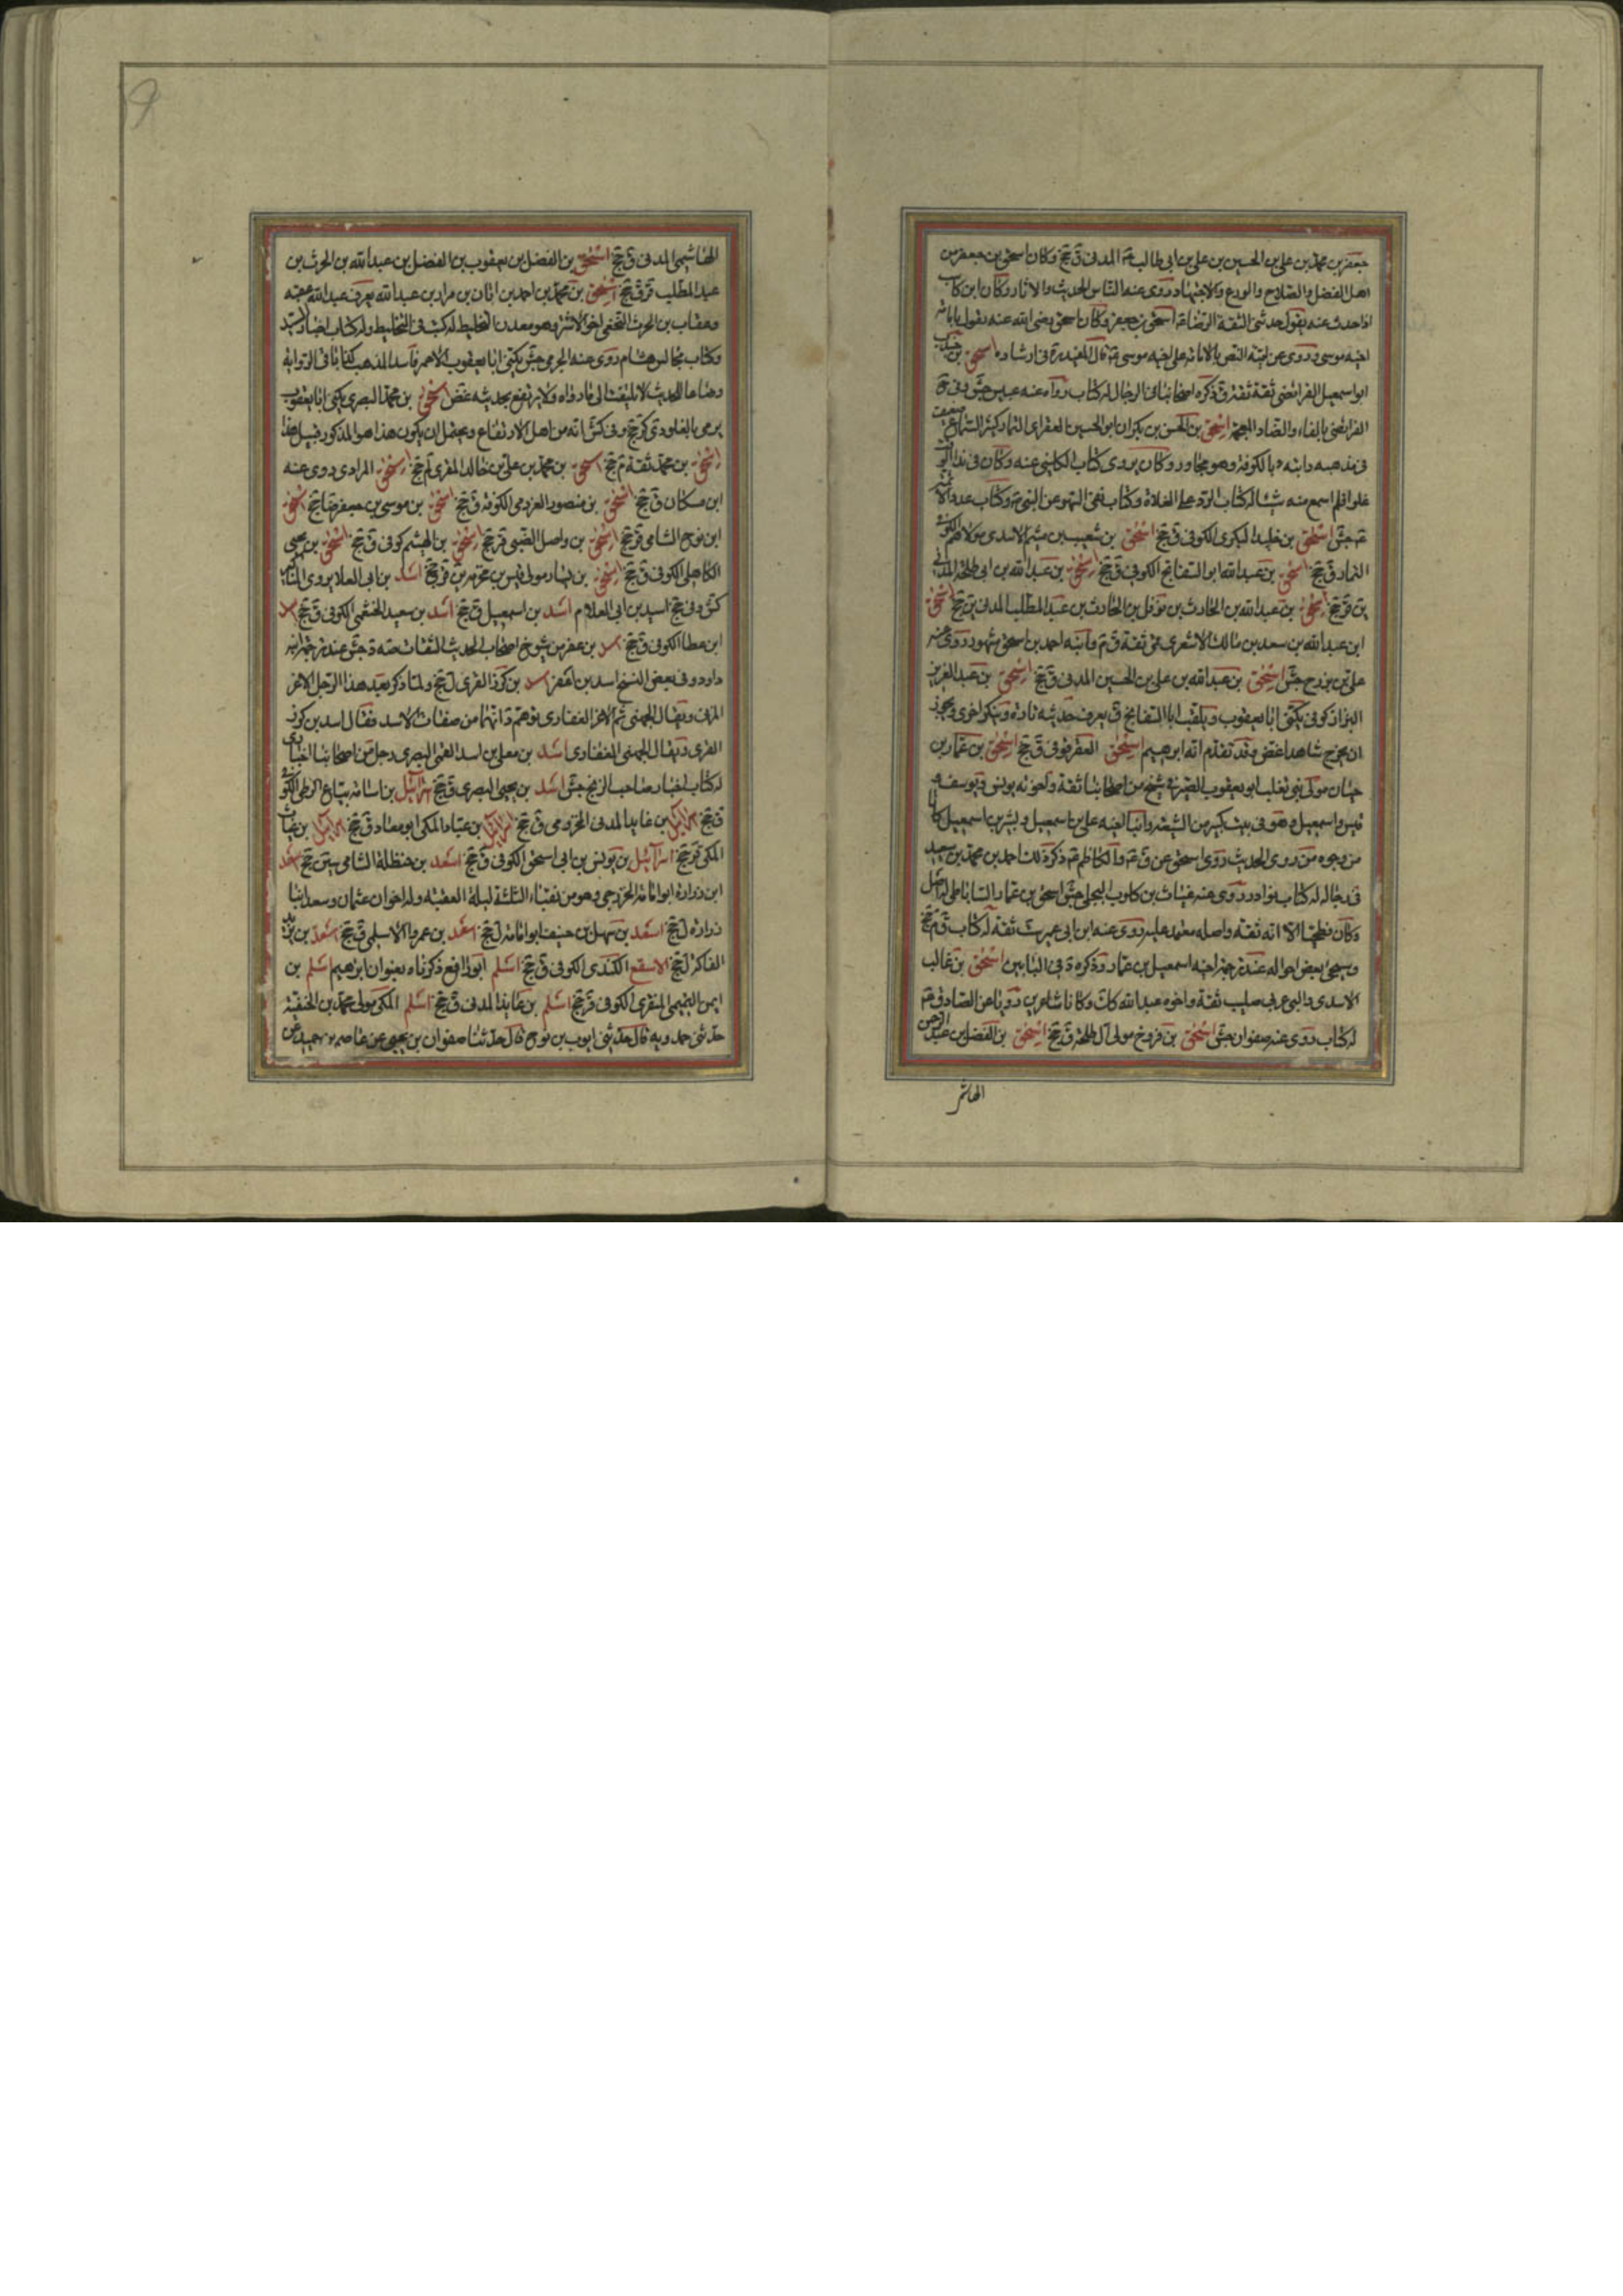 جعفر بن محمد بن علی بن الحسین بن علی بن ابی طالب ع المدنی ق جخ وکان اسحق بن جعفر من
اهل الفضل والصلاح والورع والاجتهاد وروی عنه الناس الحدیث والاثار وکان ابن کاسب
اذا حدث عنه یقول حدثنی الثقة الرضا اسحق بن جعفر وکان اسحق رضی الله عنه یقول بامامة
اخیه موسی وروی عن ابیه النص بالامامة علی اخیه موسی ع قال المفید ره فی ارشاده اسحق بن جندب
ابو اسمعیل الفرائضی ثقة ثقة ق ذکره اصحابنا فی الرجال له کتاب رواه عنه عبیس جش وفی
الفرائضی بالفاء والضاد المعجمة اسحق بن الحسن بن بکران ابو الحسین العقرابی التمار کثیر السماع ضعیف
فی مذهبه رایته بالکوفة وهو مجاور وکان یروی کتاب الکلینی عنه وکان فی هذا الوقت
غلوا فلم اسمع منه شیئا له کتاب الرد علی الغلاة وکتاب نفی السهو عن النبی ص وکتاب عدد الائمة
جش اسحق بن خلید البکری الکوفی ق جخ اسحق بن شعیب بن میثم الاسدی مولاهم الکوفی
التمار ق جخ اسحق بن عبد الله ابو السفاتج الکوفی ق جخ اسحق بن عبد الله بن ابی طلحة المدنی
ین قر جخ اسحق بن عبد الله بن الحارث بن نوفل بن الحارث بن عبد المطلب المدنی ین جخ اسحق
ابن عبد الله بن سعد بن مالک الاشعری قمی ثقة ق م وابنه احمد بن اسحق مشهور روی عنه
علی بن بزرج جش اسحق بن عبد الله بن علی بن الحسین المدنی ق جخ اسحق بن عبد العزیز
البزاز کوفی یکنی ابا یعقوب ویلقب ابا السفاتج ق یعرف حدیثه تارة وینکر اخری ویجوز
ان یخرج شاهدا غض وقد تقدم انه ابرهیم اسحق العقرقوفی ق جخ اسحق بن عمار بن
حیان مولی بنی تغلب ابو یعقوب الصیرفی شیخ من اصحابنا ثقة واخوته یونس ویوسف و
قیس واسمعیل وهو فی بیت کبیر من الشیعة وابنا اخیه علی بن اسمعیل وبشر بن اسمعیل کانا
من وجوه من روی الحدیث روی اسحق عن ق ع والکاظم ع ذکر ذلک احمد بن محمد بن سعید
فی رجاله له کتاب نوادر روی عنه غیاث بن کلوب البجلی جش اسحق بن عمار الساباطی له اصل
وکان فطحیا الا انه ثقة واصله معتمد علیه روی عنه ابن ابی عمیر ست ثقة له کتاب ق م جخ
وسیجئ بعض احواله عند ترجمة اخیه اسمعیل بن عمار وذکره د فی البابین اسحق بن غالب
الاسدی والبی عربی صلیب ثقة واخوه عبد الله کک وکانا شاعرین رویا عن الصادق ع
له کتاب روی عنه صفوان جش اسحق بن فروخ مولی آل طلحة ق جخ اسحق بن الفضل بن عبد الرحمن
الهاشمی
الهاشمی المدنی ق جخ اسحق بن الفضل بن یعقوب بن الفضل بن عبد الله بن الحرث بن
عبد المطلب قر ق جخ اسحق بن محمد بن احمد بن ابان بن مرار بن عبد الله یعرف عبد الله عقبة
وعقاب بن الحرث النخعی اخو الاشتر وهو معدن التخلیط له کتب فی التخلیط وله کتاب اخبار السید
وکتاب مجالس هشام روی عنه الجرمی جش یکنی ابا یعقوب الاحمر فاسد المذهب کذاب فی الروایة
وضاع للحدیث لا یلتفت الی ما رواه ولا یرتفع بحدیثه غض اسحق بن محمد البصری یکنی ابا یعقوب
یرمی بالغلو دی کر جخ وفی کش انه من اهل الارتفاع ویحتمل ان یکون هذا هو المذکور قبیل هذا
اسحق بن محمد ثقة م جخ اسحق بن محمد بن علی بن خالد المقری لم جخ اسحق المرادی روی عنه
ابن مسکان ق جخ اسحق بن منصور العرزمی الکوفة ق جخ اسحق بن موسی بن جعفر ضا جخ اسحق
ابن نوح الشامی قر جخ اسحق بن واصل الضبی قر جخ اسحق بن الهیثم کوفی ق جخ اسحق بن یحیی
الکاهلی الکوفی ق جخ اسحق بن یسار مولی قیس بن مخرمة ین قر جخ اسد بن ابی العلا یروی المناکیر
کش وفی جخ اسید بن ابی العلا م اسد بن اسمعیل ق جخ اسد بن سعید الخثعمی الکوفی ق جخ اسد
ابن عطا الکوفی ق جخ اسد بن عفر من شیوخ اصحاب الحدیث الثقات صه د جش عند ترجمة ابنه
داود وفی بعض النسخ اسد بن اعفر اسد بن کرز القری ل جخ ولما ذکر بعد هذا الرجل الاغر
المزنی ویقال الجهنی ثم الاغر الغفاری توهم د انهما من صفات الاسد فقال اسد بن کرز
القری ویقال الجهنی الغفاری اسد بن معلی بن اسد العمی البصری رجل من اصحابنا اخباری
له کتاب اخبار صاحب الزنج جش اسد بن یحیی البصری ق جخ اسرائیل بن اسامة بیاع الزطی الکوفی
ق جخ اسرائیل بن عاید المدنی المخزومی ق جخ اسرائیل بن عباد المکی ابو معاد ق جخ اسرائیل بن غیاث
المکی قر جخ اسرائیل بن یونس بن ابی اسحق الکوفی ق جخ اسعد بن حنظلة الشامی سین جخ اسعد
ابن زرارة ابو امامة الخزرجی وهو من نقباء الثلثة لیلة العقبة وله اخوان عثمان وسعد ابنا
زرارة ل جخ اسعد بن سهل بن حنیف ابو امامة ل جخ اسعد بن عمرو الاسلمی ق جخ اسعد بن یزید
الفاکه ل جخ الاسقع الکندی الکوفی ق جخ اسلم ابو رافع ذکرناه بعنوان ابرهیم اسلم بن
ایمن التمیمی المنقری الکوفی قر جخ اسلم بن عاید المدنی ق جخ اسلم المکی مولی محمد بن الحنفیة
حدثنی حمدویه قال حدثنی ایوب بن نوح قال حدثنا صفوان بن یحیی عن عاصم بن حمید عن